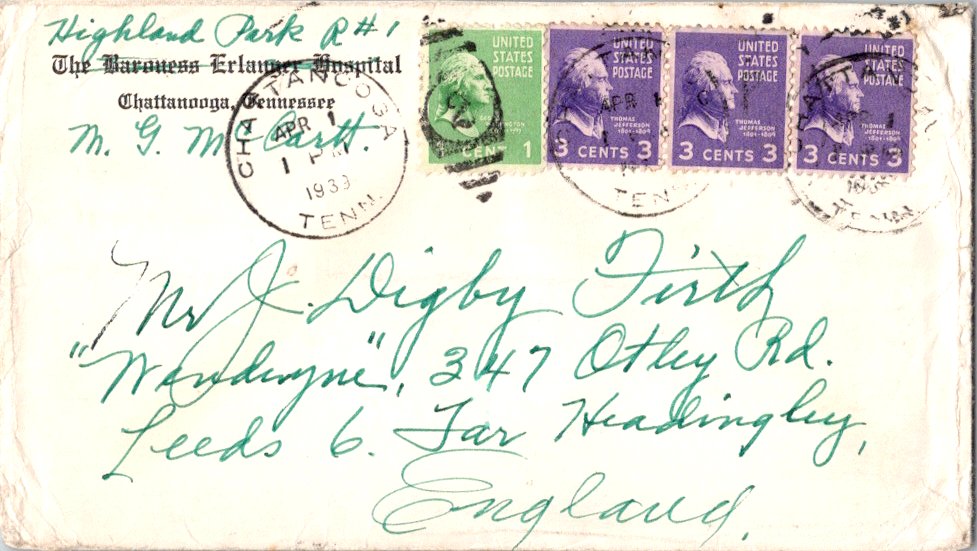 Highland Park R#1
The Baroness Erlanger Hospital
Chattanooga, Tennessee
M. G. McCartt.
CHATTANOOGA
APR 1
1 PM
1939
TENN.
UNITED
STATES
POSTAGE
1 CENT 1
UNITED
STATES
POSTAGE
THOMAS
JEFFERSON
1801-1809
3 CENTS 3
UNITED
STATES
POSTAGE
THOMAS
JEFFERSON
1801-1809
3 CENTS 3
UNITED
STATES
POSTAGE
THOMAS
JEFFERSON
1801-1809
3 CENTS 3
APR 1
TENN
APR 1
TENN
Mr J. Digby Firth
347 Otley Rd.
Leeds 6. Far Headingley,
England.